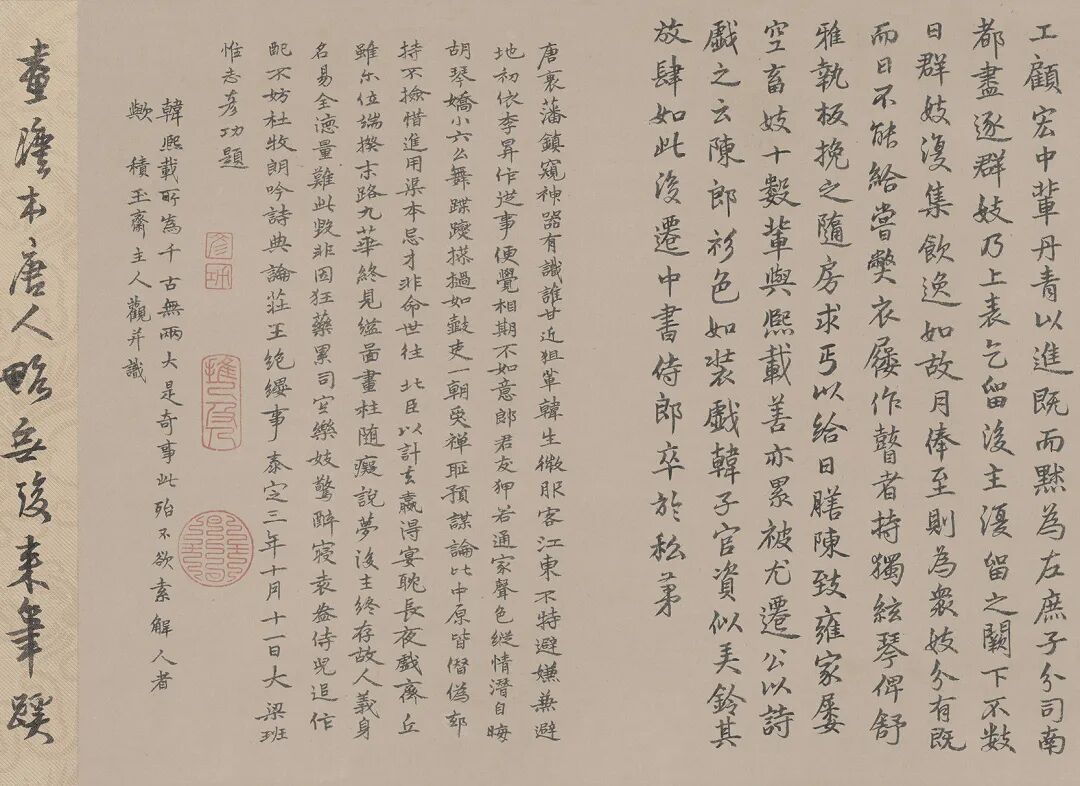 工顧宏中輩丹青以進既而黙為左庶子分司南
都盡逐群妓乃上表乞留後主復留之闕下不數
日群妓復集飲逸如故月俸至則為衆妓分有既
而日不能給嘗獘衣屨作瞽者持獨絃琴俾舒
雅執板挽之隨房求丐以給日膳陳致雍家屢
空畜妓十數輩與熙載善亦累被尤遷公以詩
戲之云陳郎衫色如裝戲韓子官資似美鈴其
放肆如此後遷中書侍郎卒於私第
唐衰藩鎮窺神器有識誰甘近狙輩韓生微服客江東不特避嫌兼避
地初依李昪作逆事便覺相期不如意郎君友狎若通家聲色縱情潛自晦
胡琴嬌小六公舞蹀躞摻撾如鼓吏一朝受禪恥預謀論比中原皆僭偽郄
持不撿惜進用渠本忌才非命世往 北臣以計去贏得宴耽長夜戲齊丘
雖尔位端揆末路九華終見縊畵畫柱随癡說夢後主終存故人義身
名易全德量難此毀非因狂藥累司空樂妓驚醉寢袁盎侍兒追作
配不妨杜牧朗吟詩典論莊王絶纓事 泰定三年十月十一日大 梁班
惟志彥功題
韓熙載所為千古無兩大是奇事此殆不欲索解人者
歟 積玉齋主人觀并識
畫唐人